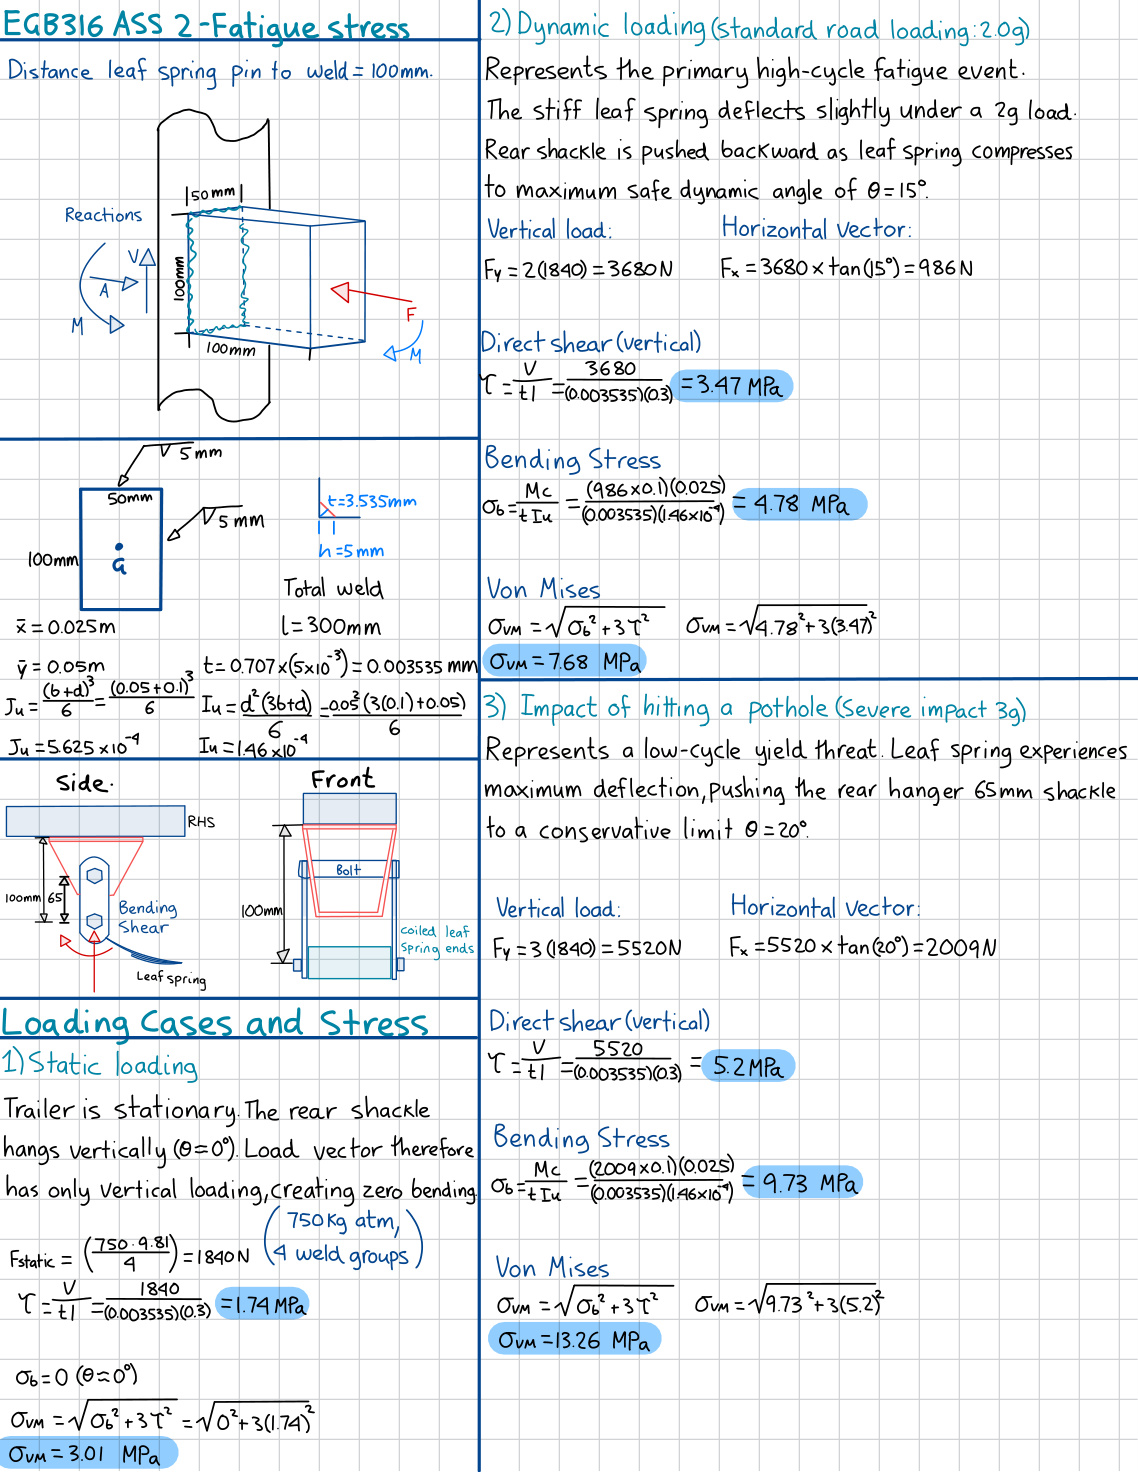 EGB316 ASS 2-Fatigue stress
Distance leaf spring pin to weld = 100mm.
50mm
Reactions
V
A
M
100mm
100mm
F
M
5mm
50mm
5mm
100mm
G
t=3.535mm
h=5mm
Total weld
x̄ = 0.025m
l = 300mm
ȳ = 0.05m
t = 0.707×(5×10⁻³) = 0.003535 mm
Ju = (b+d)³/6 = (0.05+0.1)³/6
Iu = d²(3b+d)/6 = 0.05²(3(0.1)+0.05)/6
Ju = 5.625×10⁻⁴
Iu = 1.46×10⁻⁴
Side.
Front
RHS
100mm
65
Bending
Shear
Leaf spring
Bolt
100mm
coiled leaf
spring ends
Loading Cases and Stress
1) Static loading
Trailer is stationary. The rear shackle
hangs vertically (θ=0°). Load vector therefore
has only vertical loading, creating zero bending
(750kg atm,
4 weld groups)
Fstatic = (750·9.81/4) = 1840N
τ = V/tl = 1840/(0.003535)(0.3) = 1.74 MPa
σb = 0 (θ≈0°)
σVM = √σb²+3τ² = √0²+3(1.74)²
σVM = 3.01 MPa
2) Dynamic loading (standard road loading: 2.0g)
Represents the primary high-cycle fatigue event.
The stiff leaf spring deflects slightly under a 2g load.
Rear shackle is pushed backward as leaf spring compresses
to maximum safe dynamic angle of θ=15°.
Vertical load:
Horizontal vector:
Fy = 2(1840) = 3680N
Fx = 3680 × tan(15°) = 986N
Direct shear (vertical)
τ = V/tl = 3680/(0.003535)(0.3) = 3.47 MPa
Bending Stress
σb = Mc/tIu = (986×0.1)(0.025)/(0.003535)(1.46×10⁻⁴) = 4.78 MPa
Von Mises
σVM = √σb²+3τ²
σVM = √4.78²+3(3.47)²
σVM = 7.68 MPa
3) Impact of hitting a pothole (Severe impact 3g)
Represents a low-cycle yield threat. Leaf spring experiences
maximum deflection, pushing the rear hanger 65mm shackle
to a conservative limit θ=20°.
Vertical load:
Horizontal vector:
Fy = 3(1840) = 5520N
Fx = 5520 × tan(20°) = 2009N
Direct shear (vertical)
τ = V/tl = 5520/(0.003535)(0.3) = 5.2MPa
Bending Stress
σb = Mc/tIu = (2009×0.1)(0.025)/(0.003535)(1.46×10⁻⁴) = 9.73 MPa
Von Mises
σVM = √σb²+3τ²
σVM = √9.73²+3(5.2)²
σVM = 13.26 MPa